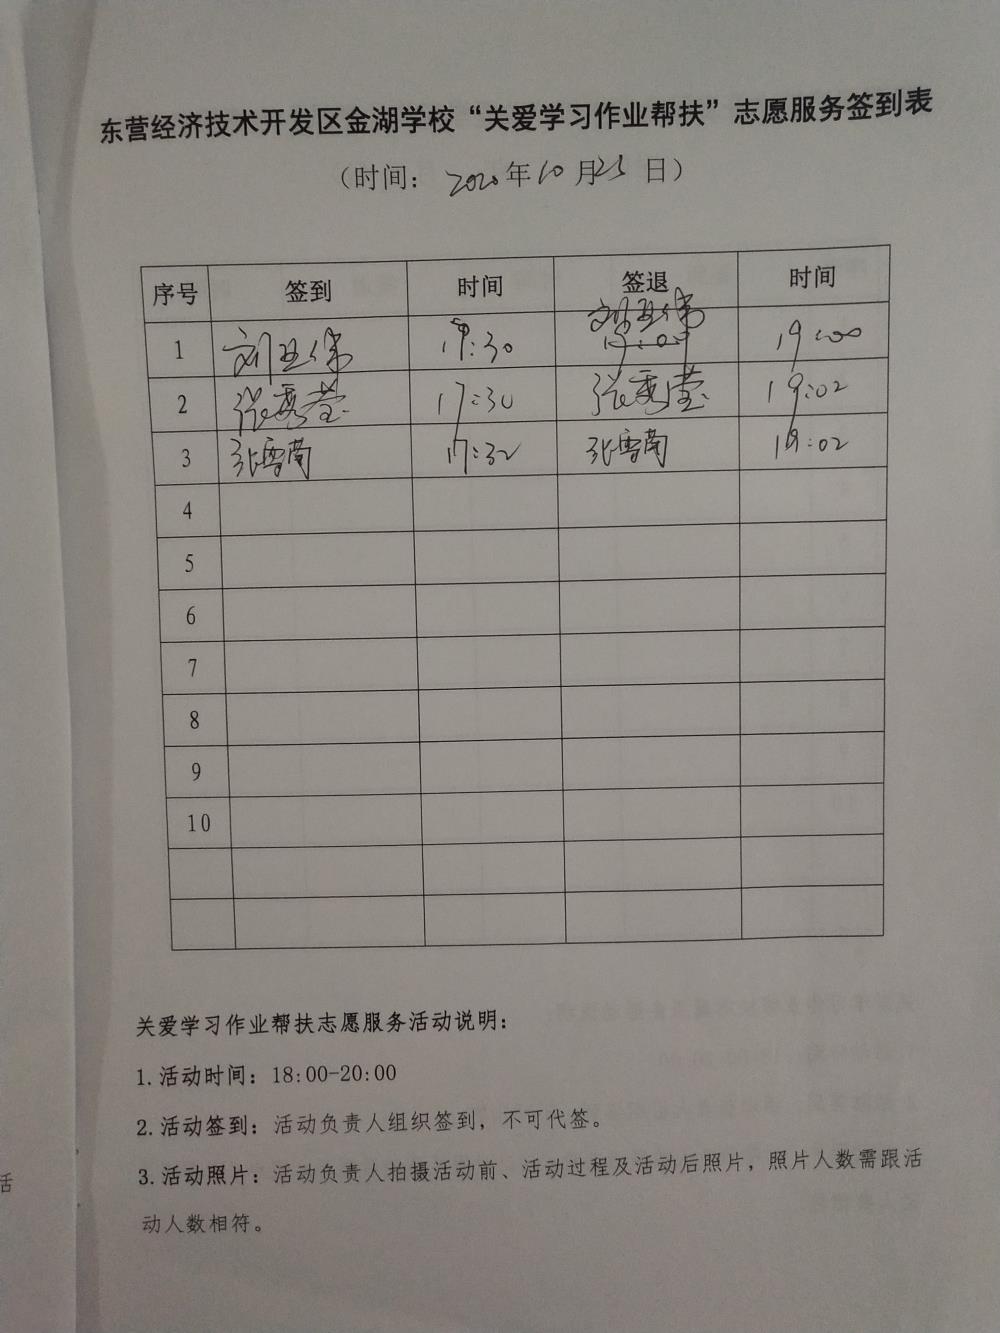 东营经济技术开发区金湖学校“关爱学习作业帮扶”志愿服务签到表
（时间： 2020年10月25日）
序号 签到 时间 签退 时间
刘卫伟
1 刘卫伟 17:30 19:00 19:00
2 张秀莹 17:30 张秀莹 19:02
3 张雪菌 17:32 张雪菌 19:02
4
5
6
7
8
9
10
关爱学习作业帮扶志愿服务活动说明：
1.活动时间：18:00-20:00
2.活动签到：活动负责人组织签到，不可代签。
3.活动照片：活动负责人拍摄活动前、活动过程及活动后照片，照片人数需跟活
动人数相符。
活